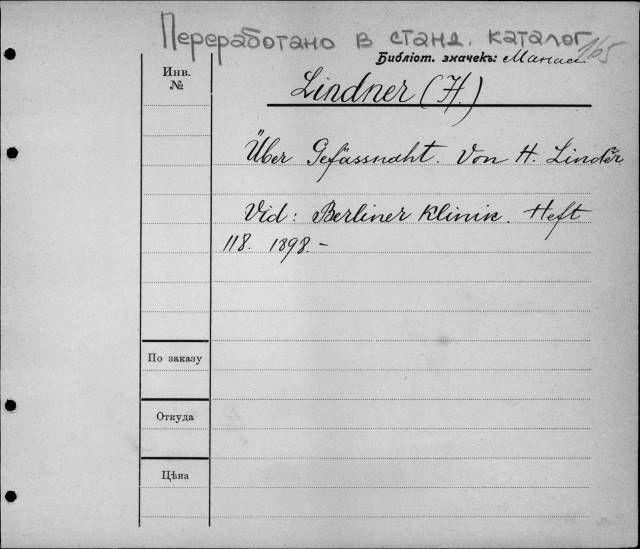 Переработано в станд. каталог
165
Библіот. значекъ:
Инв.
№
Lindner (H.)
Über Gefässnaht. Von H. Linder
Vid: Berliner Klinik. Heft
118. 1898. –
По заказу
Откуда
Цѣна